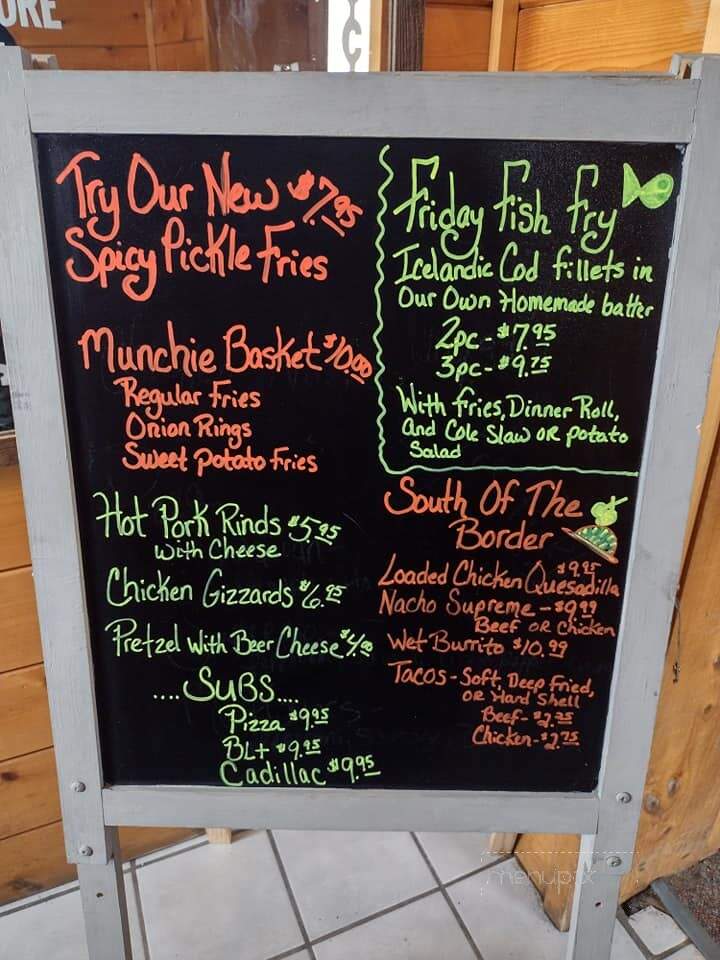 ORE
Try Our New $7.95
Spicy Pickle Fries
Munchie Basket $10.00
Regular Fries
Onion Rings
Sweet Potato Fries
Hot Pork Rinds $5.95
with Cheese
Chicken Gizzards $6.95
Pretzel with Beer Cheese $4.00
....SUBS....
Pizza $9.95
BLT $9.95
Cadillac $9.95
Friday Fish Fry
Icelandic Cod fillets in
Our Own Homemade batter
2pc - $7.95
3pc - $9.75
With fries, Dinner Roll,
and Cole Slaw OR Potato
Salad
South Of The
Border
Loaded Chicken Quesadilla $9.95
Nacho Supreme - $9.99
Beef OR Chicken
Wet Burrito $10.99
Tacos - Soft, Deep Fried,
OR Hard Shell
Beef - $2.25
Chicken - $2.75
menupix